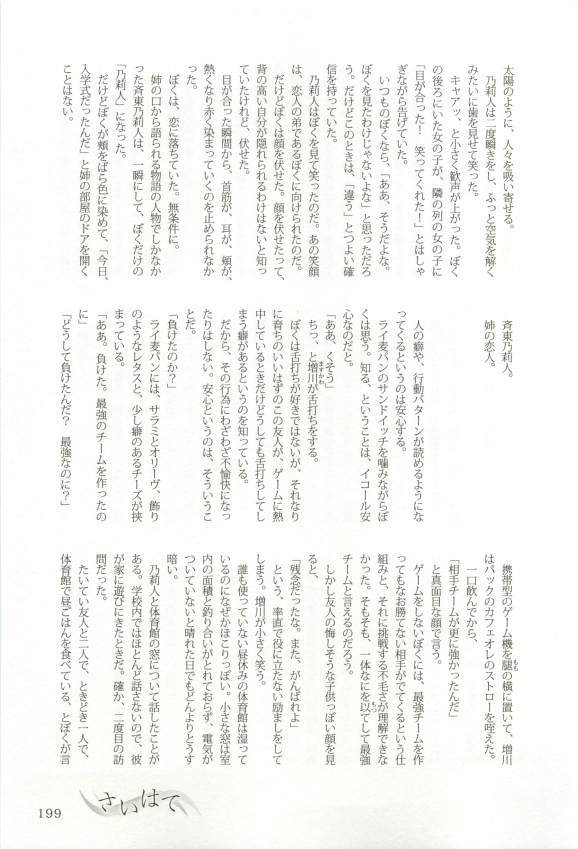 太陽のように、人々を吸い寄せる。
　乃莉人は二度瞬きをし、ふっと空気を解く
みたいに歯を見せて笑った。
　キャアッ、と小さく歓声が上がった。ぼく
の後ろにいた女の子が、隣の列の女の子に
「目が合った！　笑ってくれた！」とはしゃ
ぎながら告げていた。
　いつものぼくなら、「ああ、そうだよな。
ぼくを見たわけじゃないよな」と思っただろ
う。だけどこのときは、「違う」とつよい確
信を持っていた。
　乃莉人はぼくを見て笑ったのだ。あの笑顔
は、恋人の弟であるぼくに向けられたのだ。
　だけどぼくは顔を伏せた。顔を伏せたって、
背の高い自分が隠れられるわけはないと知っ
ていたけれど、伏せた。
　目が合った瞬間から、首筋が、耳が、頬が、
熱くなり赤く染まっていくのを止められなか
った。
　ぼくは、恋に落ちていた。無条件に。
　姉の口から語られる物語の人物でしかなか
った斉東乃莉人は、一瞬にして、ぼくだけの
「乃莉人」になった。
　だけどぼくが頬をばら色に染めて、「今日、
入学式だったんだ」と姉の部屋のドアを開く
ことはない。
斉東乃莉人。
姉の恋人。
　人の癖や、行動パターンが読めるようにな
ってくるというのは安心する。
　ライ麦パンのサンドイッチを噛みながらぼ
くは思う。知る、ということは、イコール安
心なのだと。
「ああ、くそう」
　ちっ、と増川が舌打ちをする。
　ぼくは舌打ちが好きではないが、それなり
に育ちのいいはずのこの友人が、ゲームに熱
中しているときだけどうしても舌打ちしてし
まう癖があるというのを知っている。
　だから、その行為にわざわざ不愉快になっ
たりはしない。安心というのは、そういうこ
とだ。
「負けたのか？」
　ライ麦パンには、サラミとオリーヴ、飾り
のようなレタスと、少し癖のあるチーズが挟
まっている。
「ああ。負けた。最強のチームを作ったの
に」
「どうして負けたんだ？　最強なのに？」
　携帯型のゲーム機を腿の横に置いて、増川
はパックのカフェオレのストローを咥えた。
　一口飲んでから、
「相手チームが更に強かったんだ」
と真面目な顔で言う。
　ゲームをしないぼくには、最強チームを作
ってもなお勝てない相手がでてくるという仕
組みと、それに挑戦する不毛さが理解できな
かった。そもそも、一体なにを以てして最強
チームと言えるのだろう。
　しかし友人の悔しそうな子供っぽい顔を見
ると、
「残念だったな。また、がんばれよ」
　という、率直で役に立たない励ましをして
しまう。増川が小さく笑う。
　誰も使っていない昼休みの体育館は湿って
いるのになぜかほこりっぽい。小さな窓は室
内の面積と釣り合いがとれておらず、電気が
ついていないと晴れた日でもどんよりとうす
暗い。
　乃莉人と体育館の窓について話したことが
ある。学校内ではほとんど話さないので、彼
が家に遊びにきたときだ。確か、二度目の訪
問だった。
　たいてい友人と二人で、ときどき一人で、
体育館で昼ごはんを食べている、とぼくが言
さいはて
199